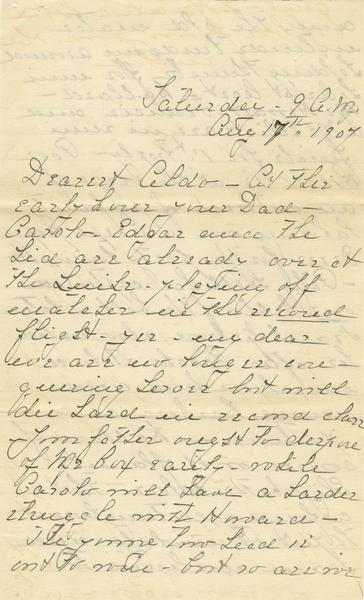 Saturday - 9 A.M.
Aug 17th. 1907
Dearest Aldo - At this
early hour your Dad -
Carolo - Edgar and the
Lid are already over at
the Links - playing off
matches in the second
flight - yes - my dear
we are no longer con-
quering heroes but will
die hard in second class
- Your father ought to dispose
of Mr Cox easily - while
Carolo will have a harder
struggle with Howard -
The young
out to win - but so are we